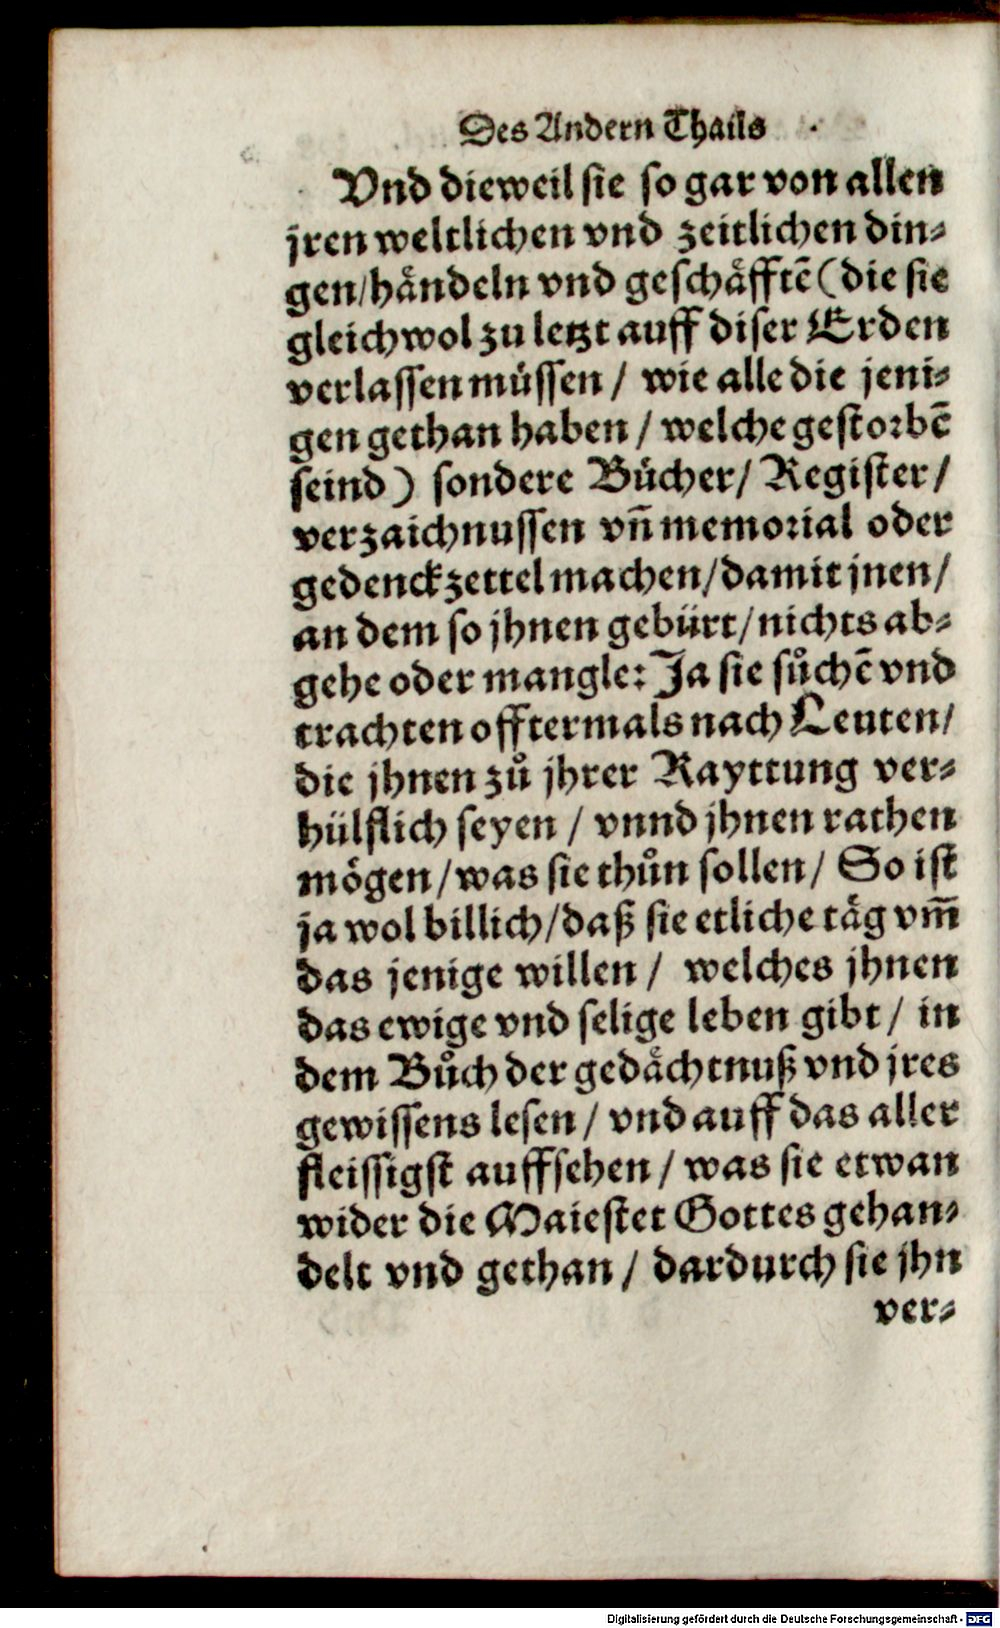 Des Andern Thails
Vnd dieweil sie so gar von allen
jren weltlichen vnd zeitlichen din⸗
gen/håndeln vnd geschåfftē (die sie
gleichwol zu letzt auff diser Erden
verlassen müssen / wie alle die jeni⸗
gen gethan haben / welche gestorbē
seind) sondere Bücher/ Register/
verzaichnussen vñ memorial oder
gedenckzettel machen/damit jnen/
an dem so jhnen gebürt/nichts ab⸗
gehe oder mangle: Ja sie sůchē vnd
trachten offtermals nach Leuten/
die jhnen zů jhrer Rayttung ver⸗
hülflich seyen / vnnd jhnen rathen
mögen/was sie thůn sollen/ So ist
ja wol billich/daß sie etliche täg vm̃
das jenige willen / welches jhnen
das ewige vnd selige leben gibt / in
dem Bůch der gedächtnuß vnd jres
gewissens lesen / vnd auff das aller
fleissigst auffsehen / was sie etwan
wider die Maiestet Gottes gehan⸗
delt vnd gethan / dardurch sie jhn
ver⸗
Digitalisierung gefördert durch die Deutsche Forschungsgemeinschaft - DFG